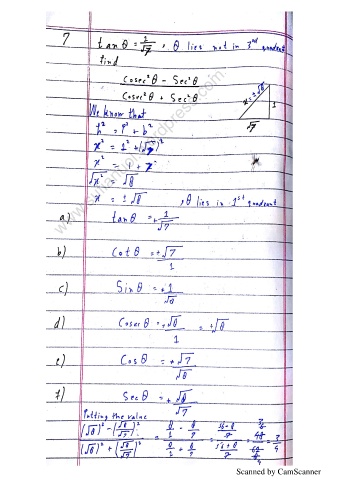 7 tan θ = 1/√7 , θ lies not in 3rd quadrant
find
Cosec²θ - Sec²θ
Cosec²θ + Sec²θ
We know that
h² = P² + b²
x² = 1² + (√7)²
x² = 1 + 7
√x² = √8
x = ±√8 , θ lies in 1st quadrant
x = ±√8
1
√7
a) tan θ = +1/√7
b) Cot θ = +√7/1
c) Sin θ = +1/√8
d) Cosec θ = +√8/1 = +√8
e) Cos θ = +√7/√8
f) Sec θ = +√8/√7
Putting the value
(√8)² - (√8/√7)² = 8/1 - 8/7 = 56-8/7 = 48/7 = 3/4
(√8)² + (√8/√7)² 8/1 + 8/7 56+8/7 64/7
Scanned by CamScanner